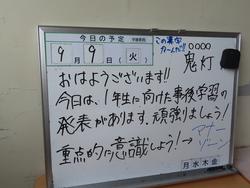 今日の予定
9月9日(火)
この漢字
○○○○
鬼灯
おはようございます!!
今日は、1年生に向けた事後学習の
発表があります、頑張りましょう!
重点的に意識しよう!→
マナー
ゾーン
月 水 木 金